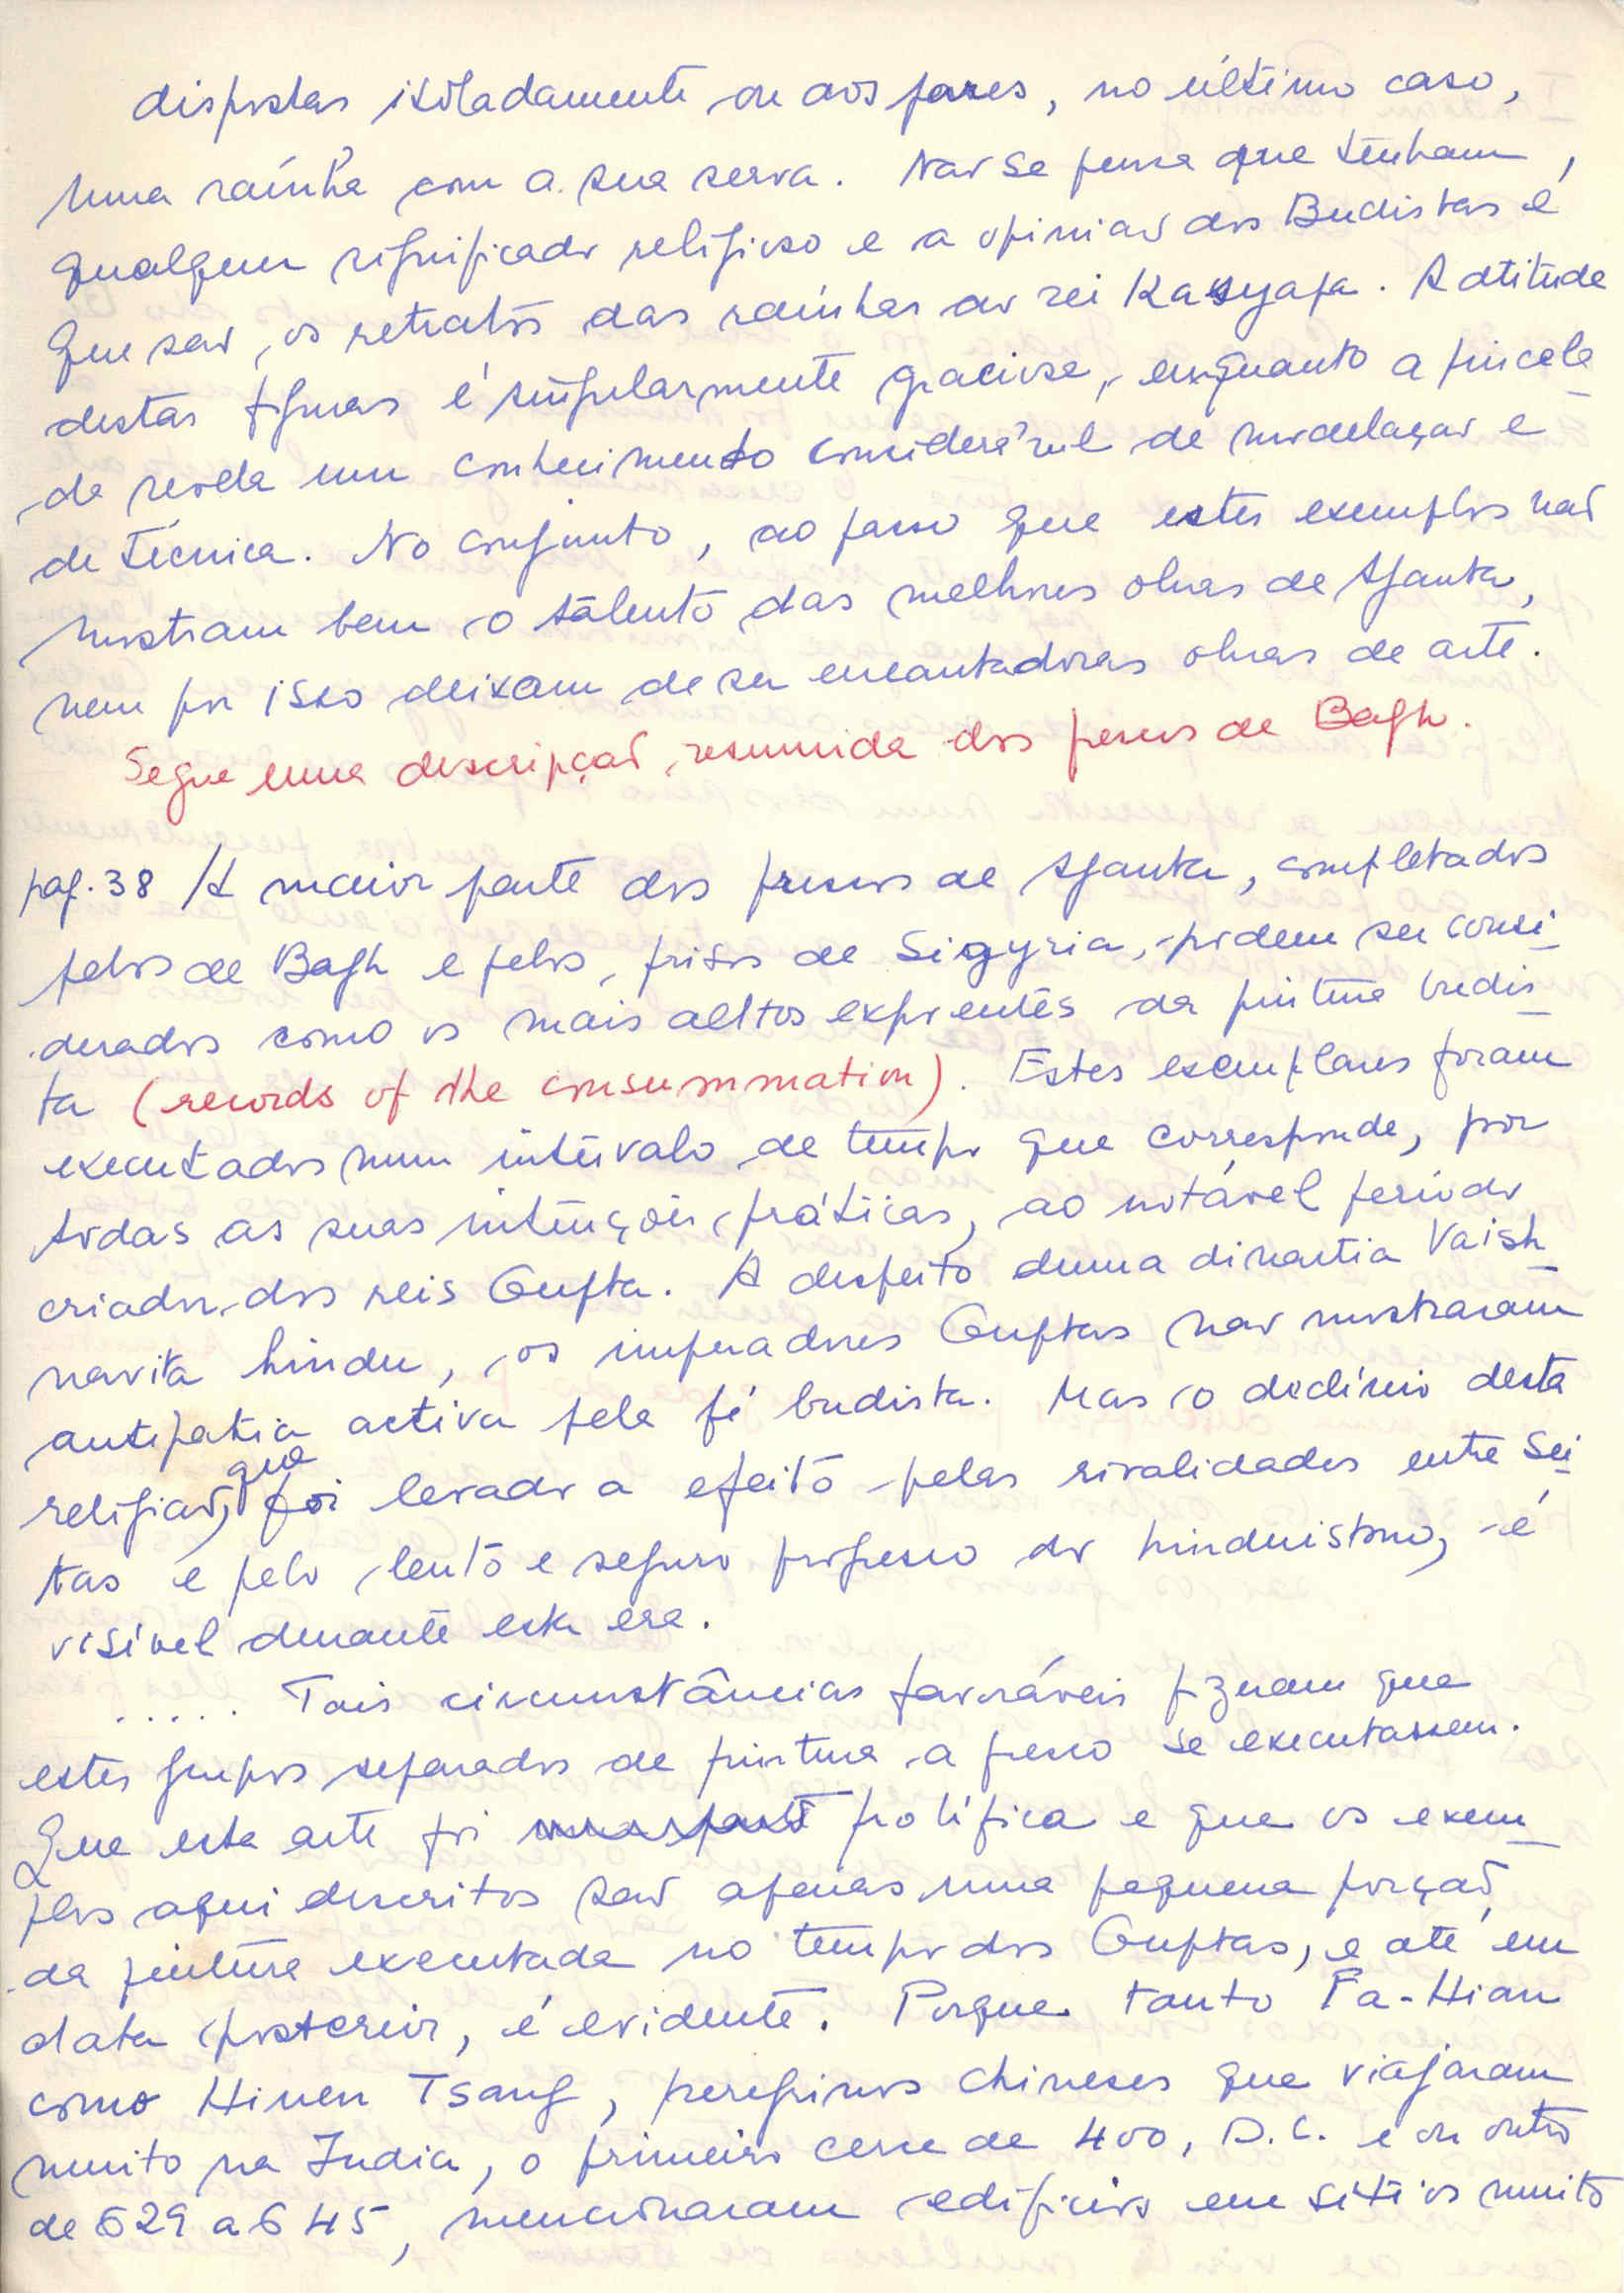 dispostas isoladamente ou aos pares, no último caso,
uma raínha com a sua serva. Não se pensa que tenham
qualquer significado religioso e a opinião dos Budistas é
que são os retratos das raínhas do rei Kasyapa. A atitude
destas figuras é singularmente graciosa, enquanto a pincela
da revela um conhecimento considerável de modelação e
de técnica. No conjunto, ao passo que estes exemplos não
mostram bem o talento das melhores obras de Ajanta,
nem por isso deixam de ser encantadoras obras de arte.
Segue uma descripção resumida dos frescos de Bagh.
pag. 38 / A maior parte dos frescos de Ajanta, completados
pelos de Bagh e pelos frisos de Sigyria, podem ser consi
derados como os mais altos expoentes da pintura budis
ta (records of the consummation). Estes exemplares foram
executados num intervalo de tempo que corresponde, por
todas as suas intenções práticas, ao notável período
criador dos reis Gupta. A despeito duma dinastia Vaish
navita hindu, os imperadores Guptas não mostraram
antipatia activa pela fé budista. Mas o declínio desta
religião, que foi levado a efeito pelas rivalidades entre sei
tas e pelo lento e seguro progresso do hinduismo, é
visível durante esta era.
..... Tais circunstâncias favoráveis fizeram que
estes grupos separados de pintura a fresco se executassem.
Que esta arte foi prolífica e que os exem
plos aqui descritos são apenas uma pequena porção
da pintura executada no tempo dos Guptas, e até em
data posterior, é evidente. Porque tanto Fa-Hian
como Hiuen Tsang, peregrinos chineses que viajaram
muito na India, o primeiro cerca de 400, D.C. e ou outro
de 629 a 645, mencionaram edificios em sitios muito